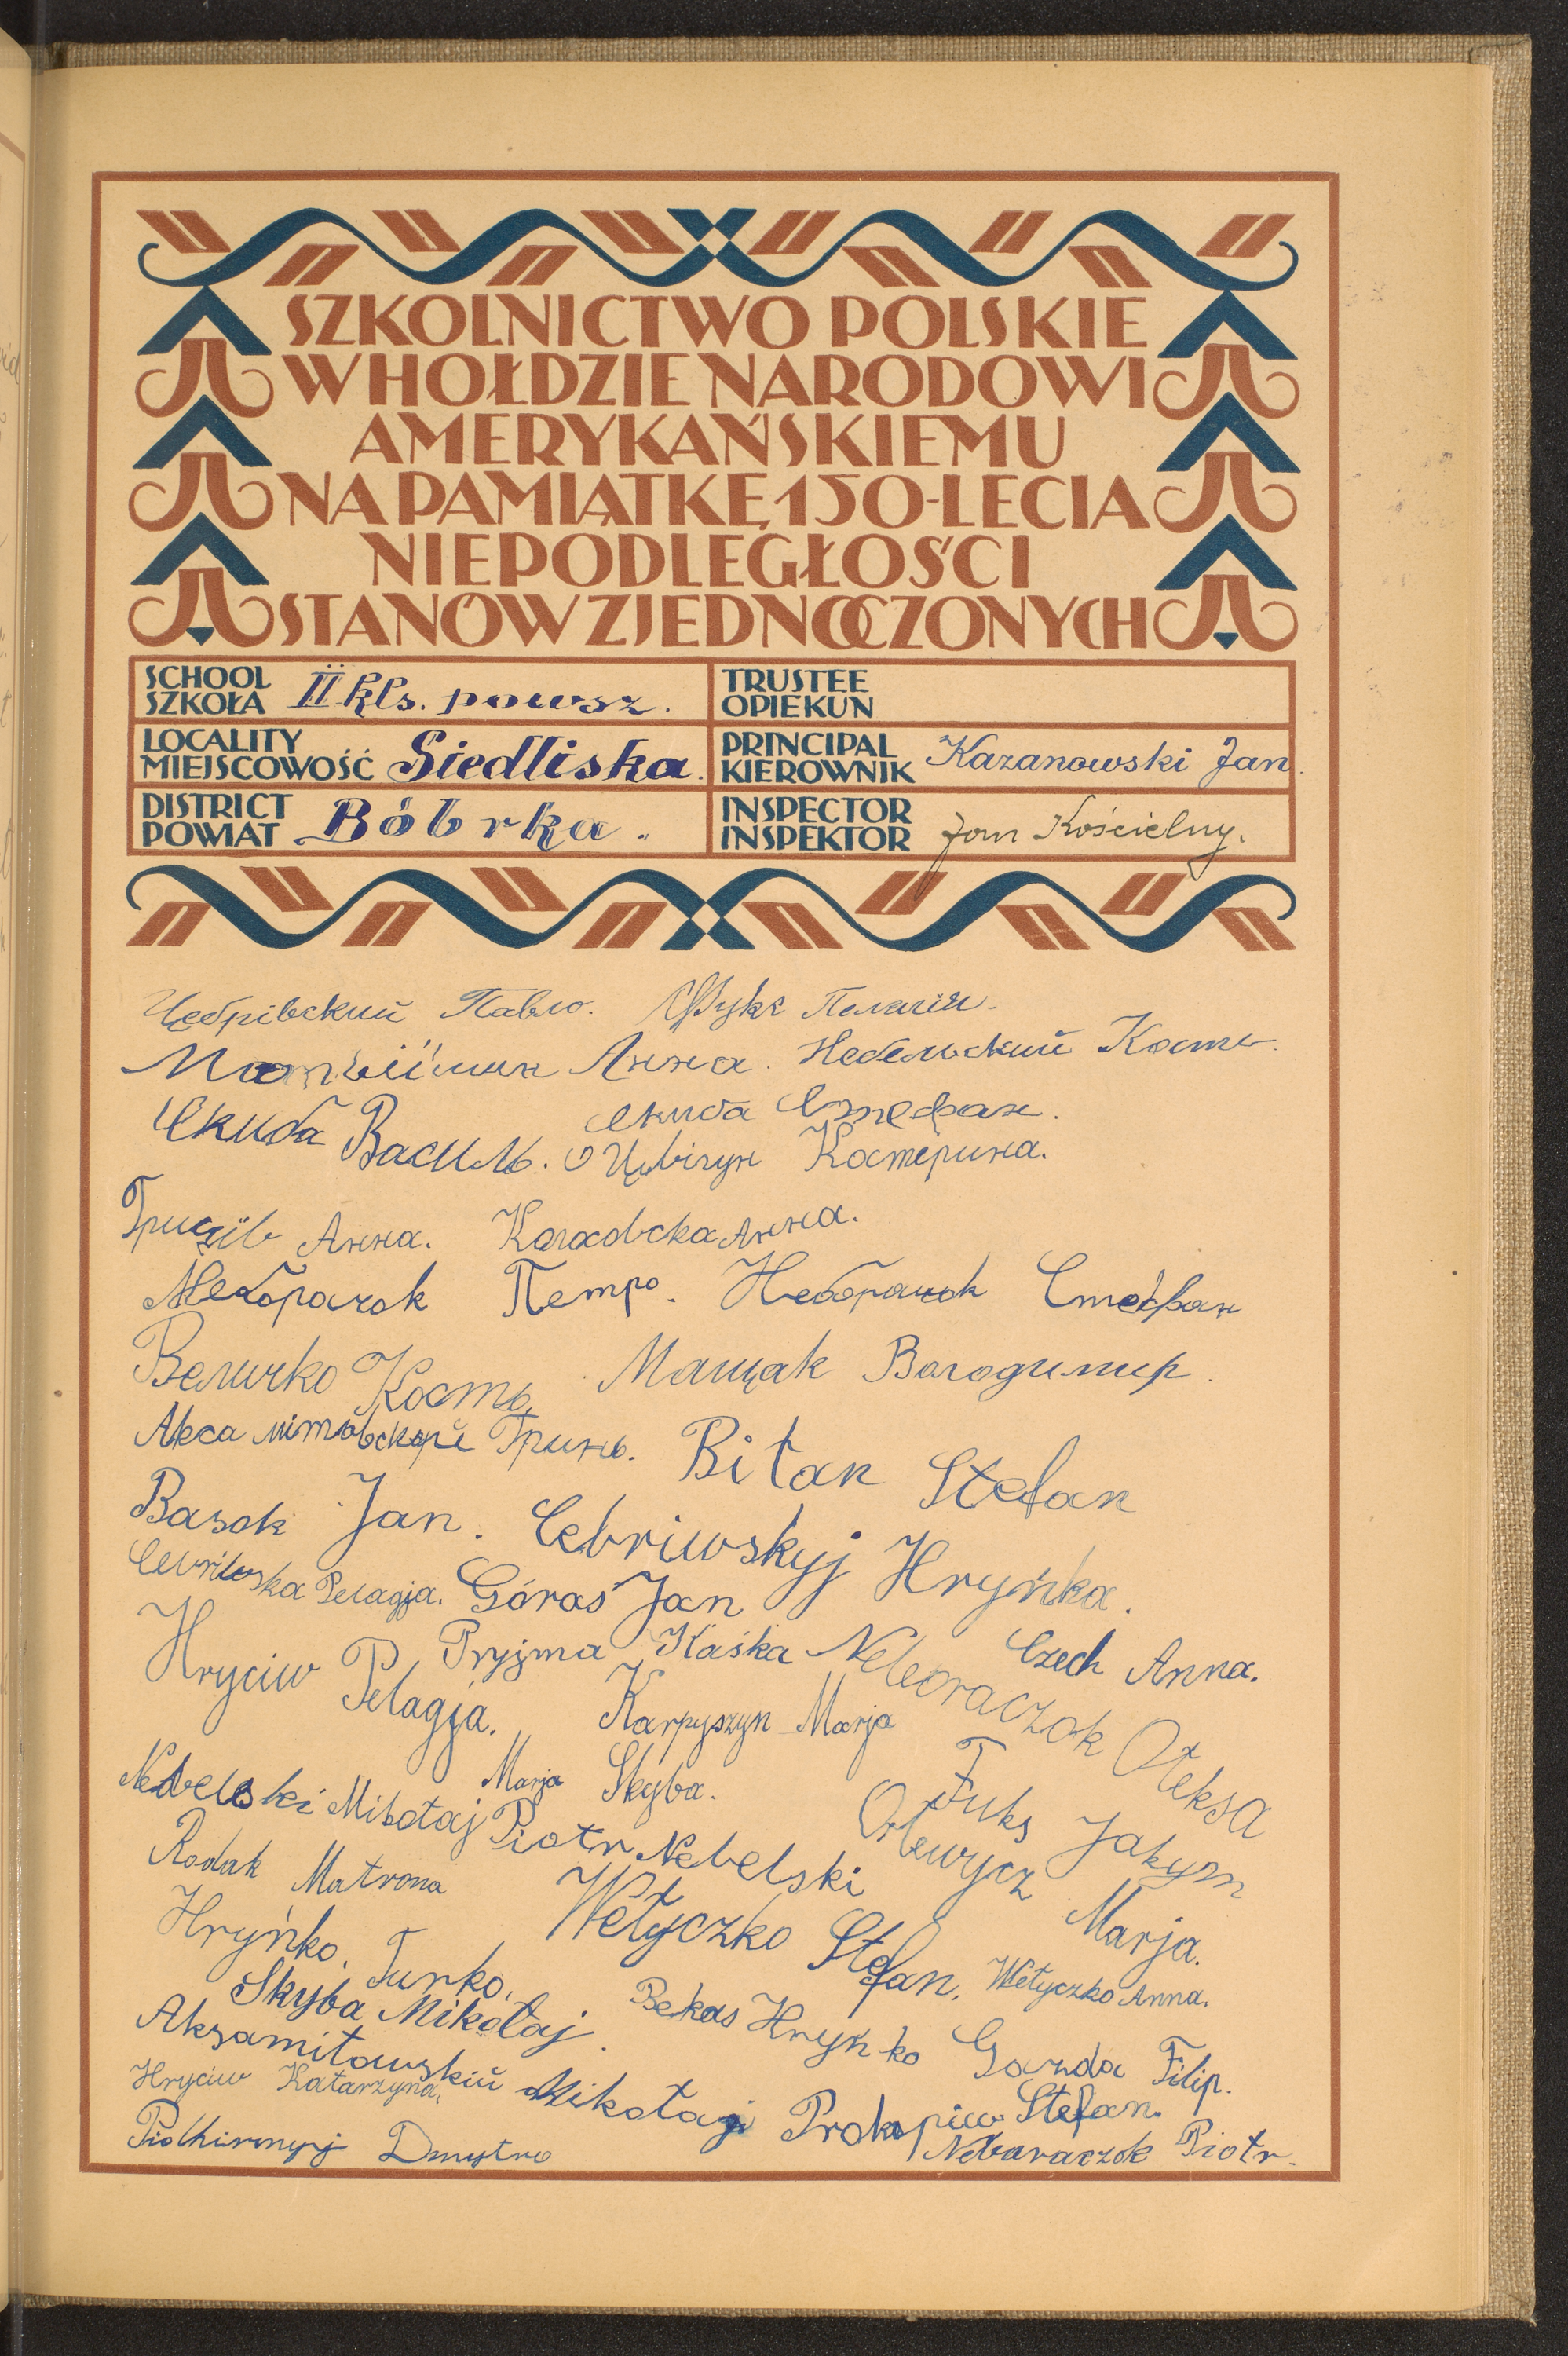 SZKOLNICTWO POLSKIE
W HOŁDZIE NARODOWI
AMERYKAŃSKIEMU
NA PAMIĄTKĘ 150-LECIA
NIEPODLEGŁOŚCI
STANÓW ZJEDNOCZONYCH
SCHOOL
SZKOŁA II kls. powsz.
TRUSTEE
OPIEKUN
LOCALITY
MIEJSCOWOŚĆ Siedliska.
PRINCIPAL
KIEROWNIK Kazanowski Jan.
DISTRICT
POWIAT Bóbrka.
INSPECTOR
INSPEKTOR Jan Kościelny.
Цебрівский Павло. Пелагія.
Анна. Небельский Кость.
Скиба Василь. Скиба Стефан.
Костерина.
Гриців Анна. Анна.
Неборачок Петро. Неборачок Стефан
Величко Кость Мацяк Володимир.
Гринь. Bitan Stefan
Basok Jan. Cebriwskyj Hryńka.
Cebriwska Pelagja. Góraś Jan
Hryciw Pelagja. Pryjma Kaśka Czech Anna.
Neboraczok Ołeksa
Karpyszyn Marja
Marja Skyba. Fuks Jakym
Nebelski Mikołaj Piotr Nebelski Orlewycz Marja.
Rodak Matrona
Hryńko Turko. Wełyczko Stefan. Wełyczko Anna.
Skyba Mikołaj. Bekas Hryńko Gazda Filip.
Aksamitowskiu Mikołaj Prokopiw Stefan.
Hryciw Katarzyna.
Dmytro Nebaraczok Piotr.